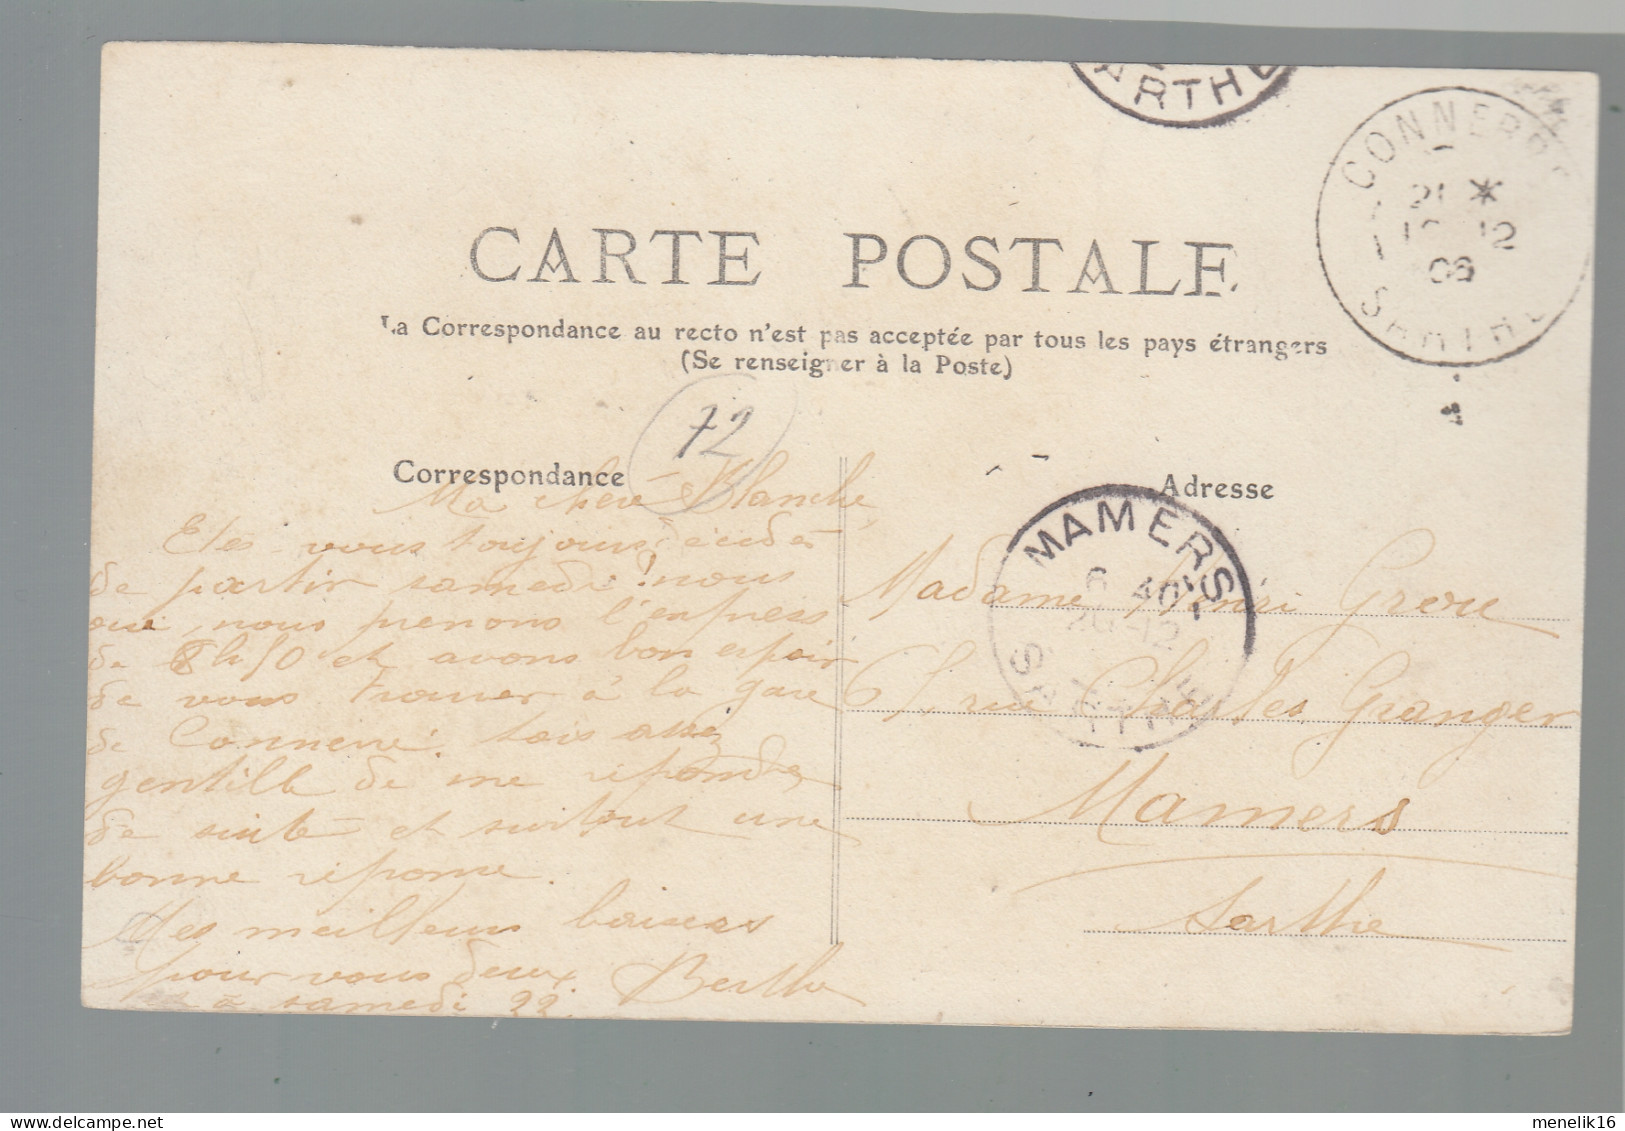 ARTHE
CONNERRÉ
21 *
12
06
SARTHE
CARTE POSTALE
La Correspondance au recto n'est pas acceptée par tous les pays étrangers
(Se renseigner à la Poste)
72
Correspondance
Adresse
Ma chère Blanche,
Etes vous toujours décidés
de partir samedi? nous
oui, nous prenons l'express
de 8h50 et avons bon espoir
de vous trouver à la gare
de Connerré. Sois assez
gentille de me répondre
de suite et surtout une
bonne réponse.
Mes meilleurs baisers
pour vous deux. Berthe
à samedi 22.
MAMERS
6 40
20-12
SARTHE
Madame Henri Grere
rue Charles Granger
Mamers
Sarthe
menelik16